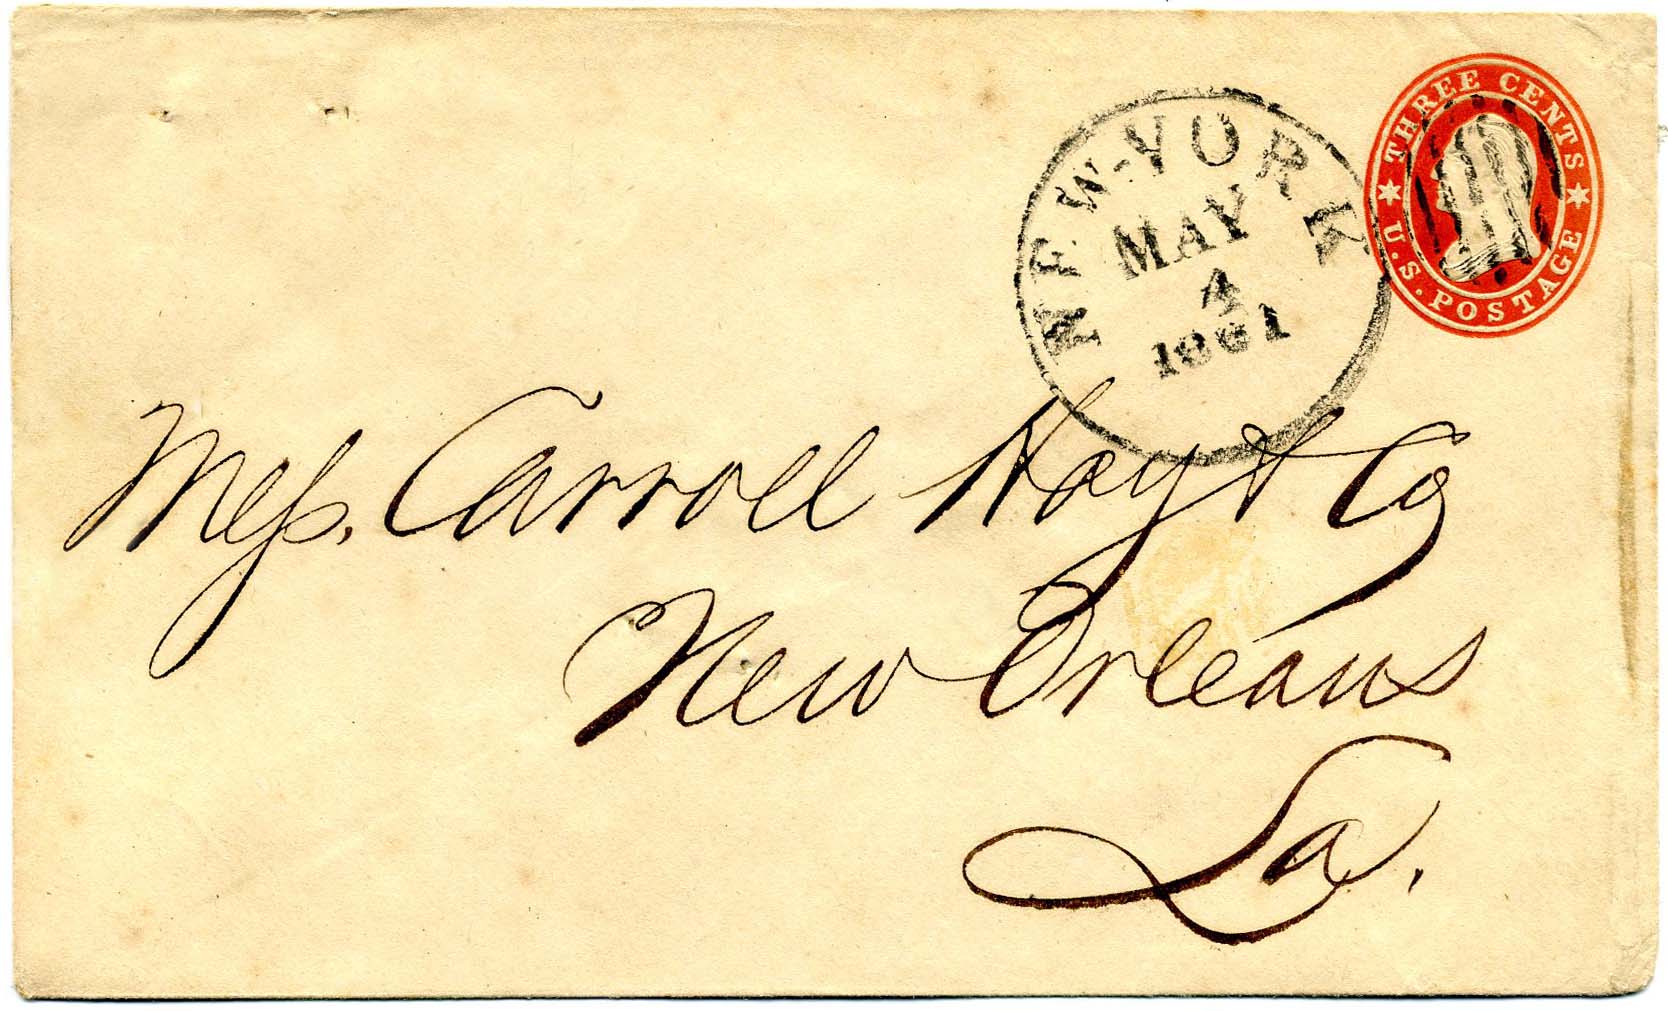 NEW-YORK
MAY
4
1861
THREE CENTS
U.S. POSTAGE
Mess. Carroll Hoyt & Co
New Orleans
La.